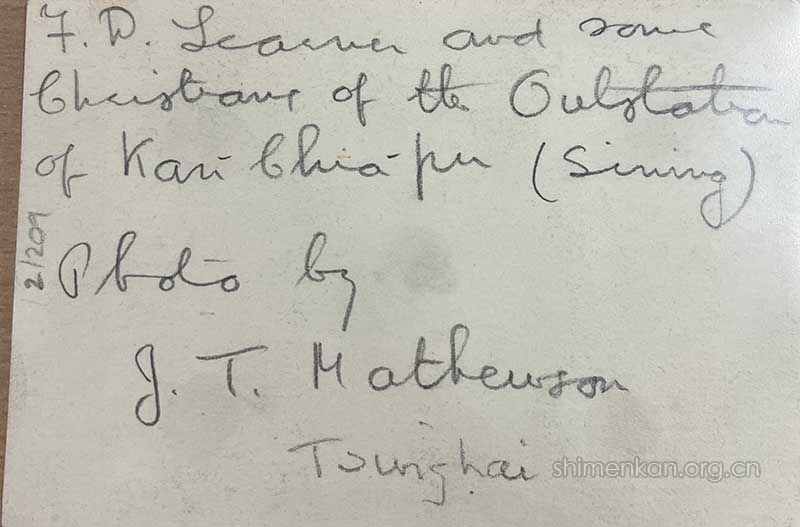 F. D. Learner and some
Christians of the Outstation
of Kan Chia-pu (Sining)
Photo by
J. T. Mathewson
Tsinghai
2/209
shimenkan.org.cn